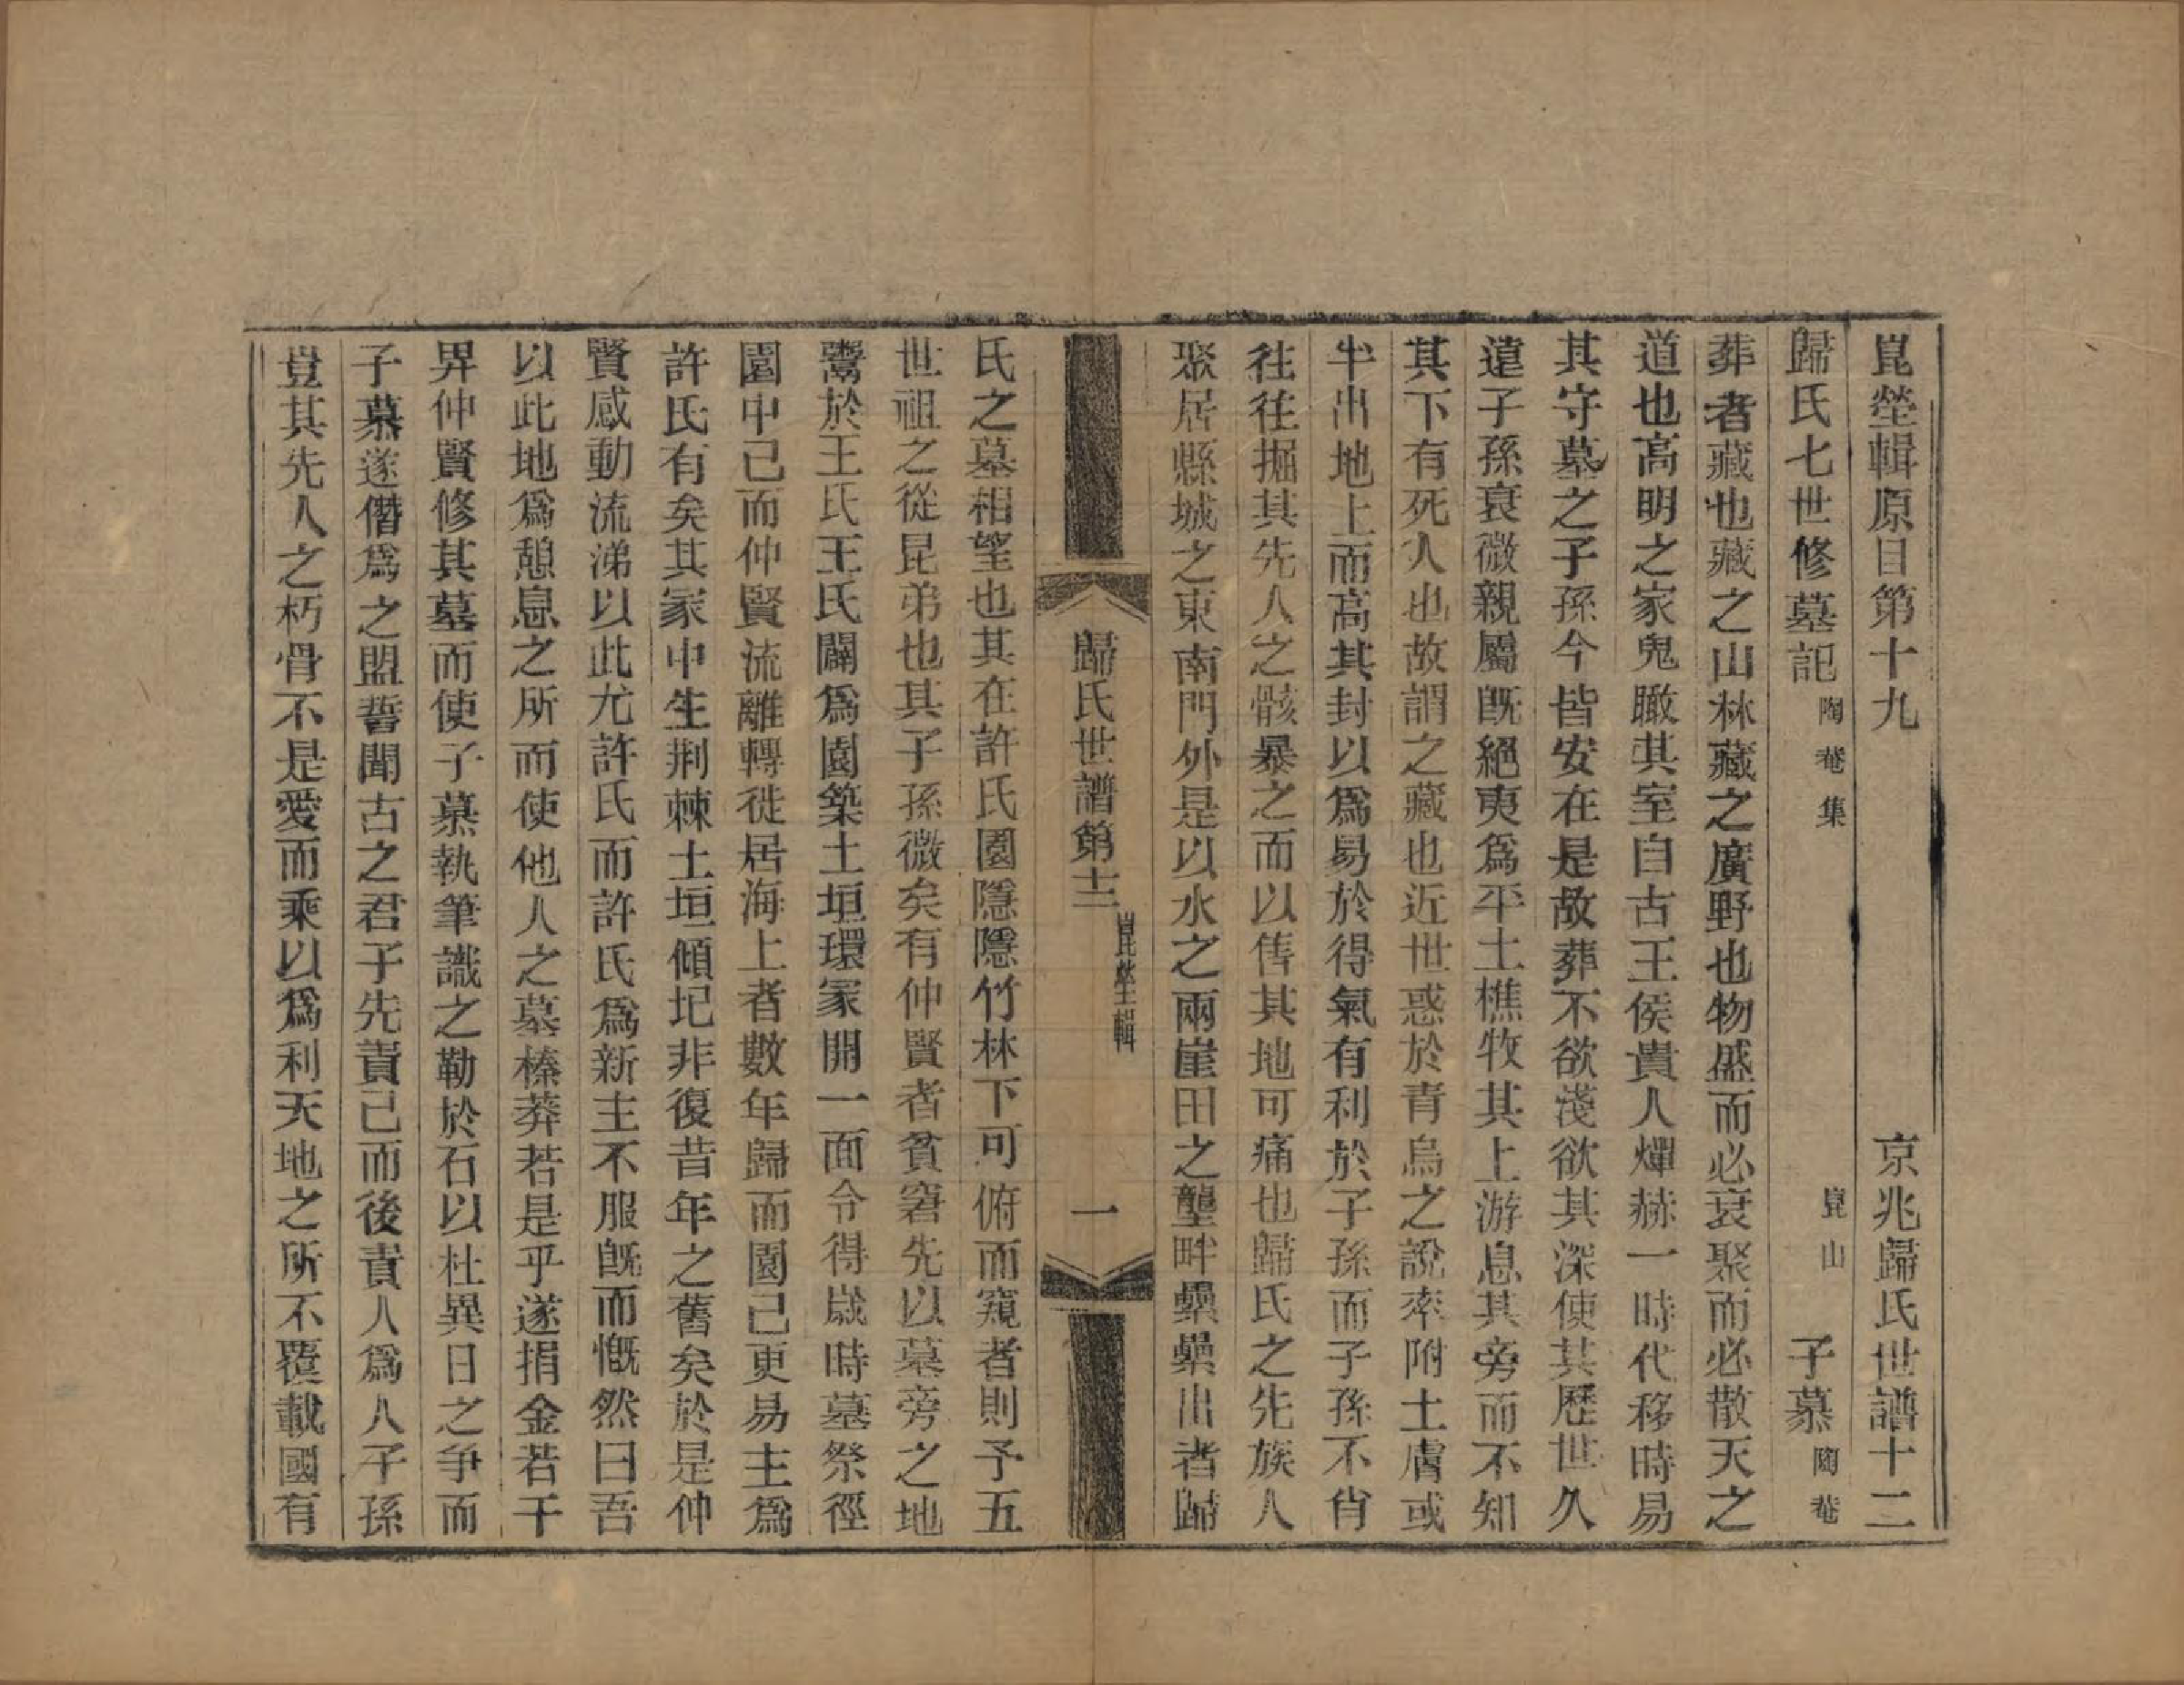 崑塋輯原目第十九　京兆歸氏世譜十二
歸氏七世修墓記陶菴集　崑山子慕陶菴
葬者藏也藏之山林藏之廣野也物盛而必衰聚而必散天之
道也高明之家鬼瞰其室自古王侯貴人燀赫一時代移時易
其守墓之子孫今皆安在是故葬不欲淺欲其深使其歷世久
遠子孫衰微親屬既絕夷爲平土樵牧其上游息其旁而不知
其下有死人也故謂之藏也近世惑於青烏之說率附土膚或
半出地上而高其封以爲易於得氣有利於子孫而子孫不肖
往往掘其先人之骸暴之而以售其地可痛也歸氏之先族人
聚居縣城之東南門外是以水之兩崖田之壟畔纍纍出者歸
歸氏世譜第十二　崑塋輯　一
氏之墓相望也其在許氏園隱隱竹林下可俯而窺者則予五
世祖之從昆弟也其子孫微矣有仲賢者貧窘先以墓旁之地
鬻於王氏王氏闢爲園築土垣環冢開一面令得歲時墓祭徑
園中已而仲賢流離轉徙居海上者數年歸而園已更易主爲
許氏有矣其冢中生荆棘土垣傾圮非復昔年之舊矣於是仲
賢感動流涕以此尤許氏而許氏爲新主不服既而慨然曰吾
以此地爲憩息之所而使他人之墓榛莽若是乎遂捐金若干
畀仲賢修其墓而使子慕執筆識之勒於石以杜異日之爭而
子慕遂僭爲之盟誓聞古之君子先責己而後責人爲人子孫
豈其先人之朽骨不是愛而乘以爲利天地之所不覆載國有